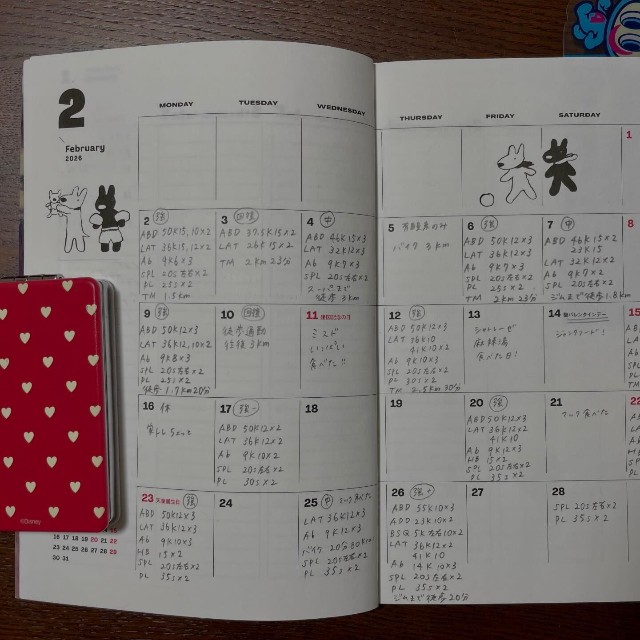 2
February
2026
MONDAY
TUESDAY
WEDNESDAY
THURSDAY
FRIDAY
SATURDAY
1
2 強
ABD 50K15,10×2
LAT 36K15,12×2
Ab 9K6×3
SPL 20S左右×2
PL 25S×2
TM 1.5km
3 回復
ABD 39.5K15×2
LAT 26K15×2
TM 2km 23分
4 中
ABD 46K15×3
LAT 32K12×3
Ab 9K7×3
SPL 20S左右×2
スーパーまで
徒歩3km
5 有酸素のみ
バイク 8km
6 強
ABD 50K12×3
LAT 36K12×3
Ab 9K7×3
SPL 20S左右×2
PL 25S×2
TM 2km 23分
7 中
ABD 46K15×2
23K15
LAT 32K12×2
Ab 9K7×2
SPL 20S左右×2
ジムまで徒歩1.8km
8
9 強
ABD 50K12×3
LAT 36K12,10×2
Ab 9K8×3
SPL 20S左右×2
PL 25S×2
徒歩1.7km20分
10 回復
徒歩通勤
往復3km
11 建国記念の日
ミスド
いいぱい
食べた!!
12 強
ABD 50K12×3
LAT 36K10
41K10×2
Ab 9K10×3
SPL 20S左右×2
PL 25S×2
TM 2.5km 30分
13
シャトレーゼ
麻辣湯
食べた日!
14 聖バレンタインデー
ジャンクフード!
15
16 休
筋トレちょっと
17 強-
ABD 50K12×2
LAT 36K12×2
Ab 9K10×2
SPL 20S左右×2
PL 30S×2
18
19
20 強
ABD 50K12×3
LAT 36K12×2
41K10
Ab 9K12×3
HB 15×2
SPL 20S左右×2
PL 35S×2
21
マック食べた
22
23 天皇誕生日 強
ABD 50K12×3
LAT 36K12×3
Ab 9K12×3
HB 15×2
SPL 20S左右×2
PL 35S×2
24
25 中 マック食べた
LAT 36K12×3
Ab 9K12×3
バイク 20分 80km
SPL 20S左右×2
PL 35S×2
26 強+
ABD 55K10×3
ADD 23K10×2
BSQ 5K10×2
LAT 36K12×2
41K10
Ab 14K10×3
SPL 20S左右×2
PL 35S×2
ジムまで徒歩20分
27
28
SPL 20S左右×2
PL 35S×2
©Disney
16 17 18 19 20 21 22
23 24 25 26 27 28 29
30 31